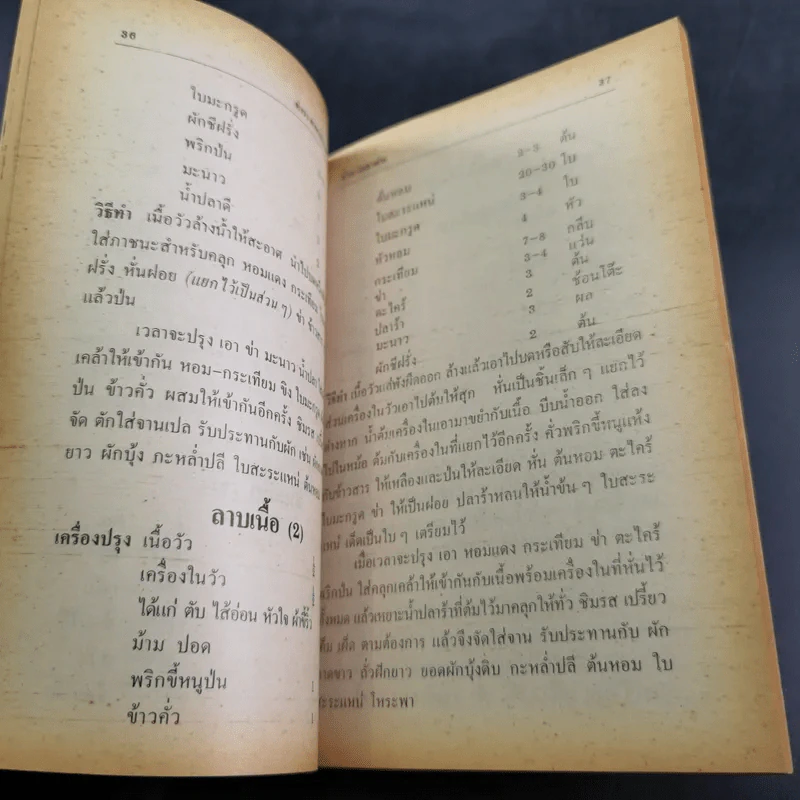 36
ใบมะกรูด
ผักชีฝรั่ง
พริกป่น
มะนาว
น้ำปลาดี
วิธีทำ เนื้อวัวล้างน้ำให้สะอาด
ใส่ภาชนะสำหรับคลุก หอมแดง กระเทียม
ฝรั่ง หั่นฝอย (แยกไว้เป็นส่วน ๆ) ข่า
แล้วป่น
เวลาจะปรุง เอา ข่า มะนาว น้ำปลา
เคล้าให้เข้ากัน หอม-กระเทียม ขิง ใบมะกรูด
ป่น ข้าวคั่ว ผสมให้เข้ากันอีกครั้ง ชิมรส
จัด ตักใส่จานเปล รับประทานกับผัก เช่น
ยาว ผักบุ้ง กะหล่ำปลี ใบสะระแหน่ ต้นหอม
ลาบเนื้อ (2)
เครื่องปรุง เนื้อวัว
เครื่องในวัว
ได้แก่ ตับ ไส้อ่อน หัวใจ ผ้าขี้ริ้ว
ม้าม ปอด
พริกขี้หนูป่น
ข้าวคั่ว
37
ต้นหอม 2-3 ต้น
ใบสะระแหน่ 20-30 ใบ
ใบมะกรูด 3-4 ใบ
หัวหอม 4 หัว
กระเทียม 7-8 กลีบ
ข่า 3-4 แว่น
ตะไคร้ 3 ต้น
ปลาร้า 2 ช้อนโต๊ะ
มะนาว 3 ผล
ผักชีฝรั่ง 2 ต้น
วิธีทำ เนื้อวัวแล่พังผืดออก ล้างแล้วเอาไปบดหรือสับให้ละเอียด
ส่วนเครื่องในวัวเอาไปต้มให้สุก หั่นเป็นชิ้นเล็ก ๆ แยกไว้
ต่างหาก น้ำต้มเครื่องในเอามาขยำกับเนื้อ บีบน้ำออก ใส่ลง
ไปในหม้อ ต้มกับเครื่องในที่แยกไว้อีกครั้ง คั่วพริกขี้หนูแห้ง
กับข้าวสาร ให้เหลืองและป่นให้ละเอียด หั่น ต้นหอม ตะไคร้
ใบมะกรูด ข่า ให้เป็นฝอย ปลาร้าหลนให้น้ำข้น ๆ ใบสะระ
แหน่ เด็ดเป็นใบ ๆ เตรียมไว้
เมื่อเวลาจะปรุง เอา หอมแดง กระเทียม ข่า ตะไคร้
พริกป่น ใส่คลุกเคล้าให้เข้ากันกับเนื้อพร้อมเครื่องในที่หั่นไว้
ทั้งหมด แล้วเหยาะน้ำปลาร้าที่ต้มไว้มาคลุกให้ทั่ว ชิมรส เปรี้ยว
เค็ม เผ็ด ตามต้องการ แล้วจึงจัดใส่จาน รับประทานกับ ผัก
กาดขาว ถั่วฝักยาว ยอดผักบุ้งดิบ กะหล่ำปลี ต้นหอม ใบ
สะระแหน่ โหระพา